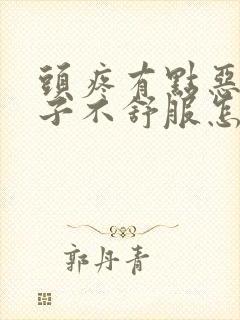 頭疼有點惡
子不舒服怎
郭丹青